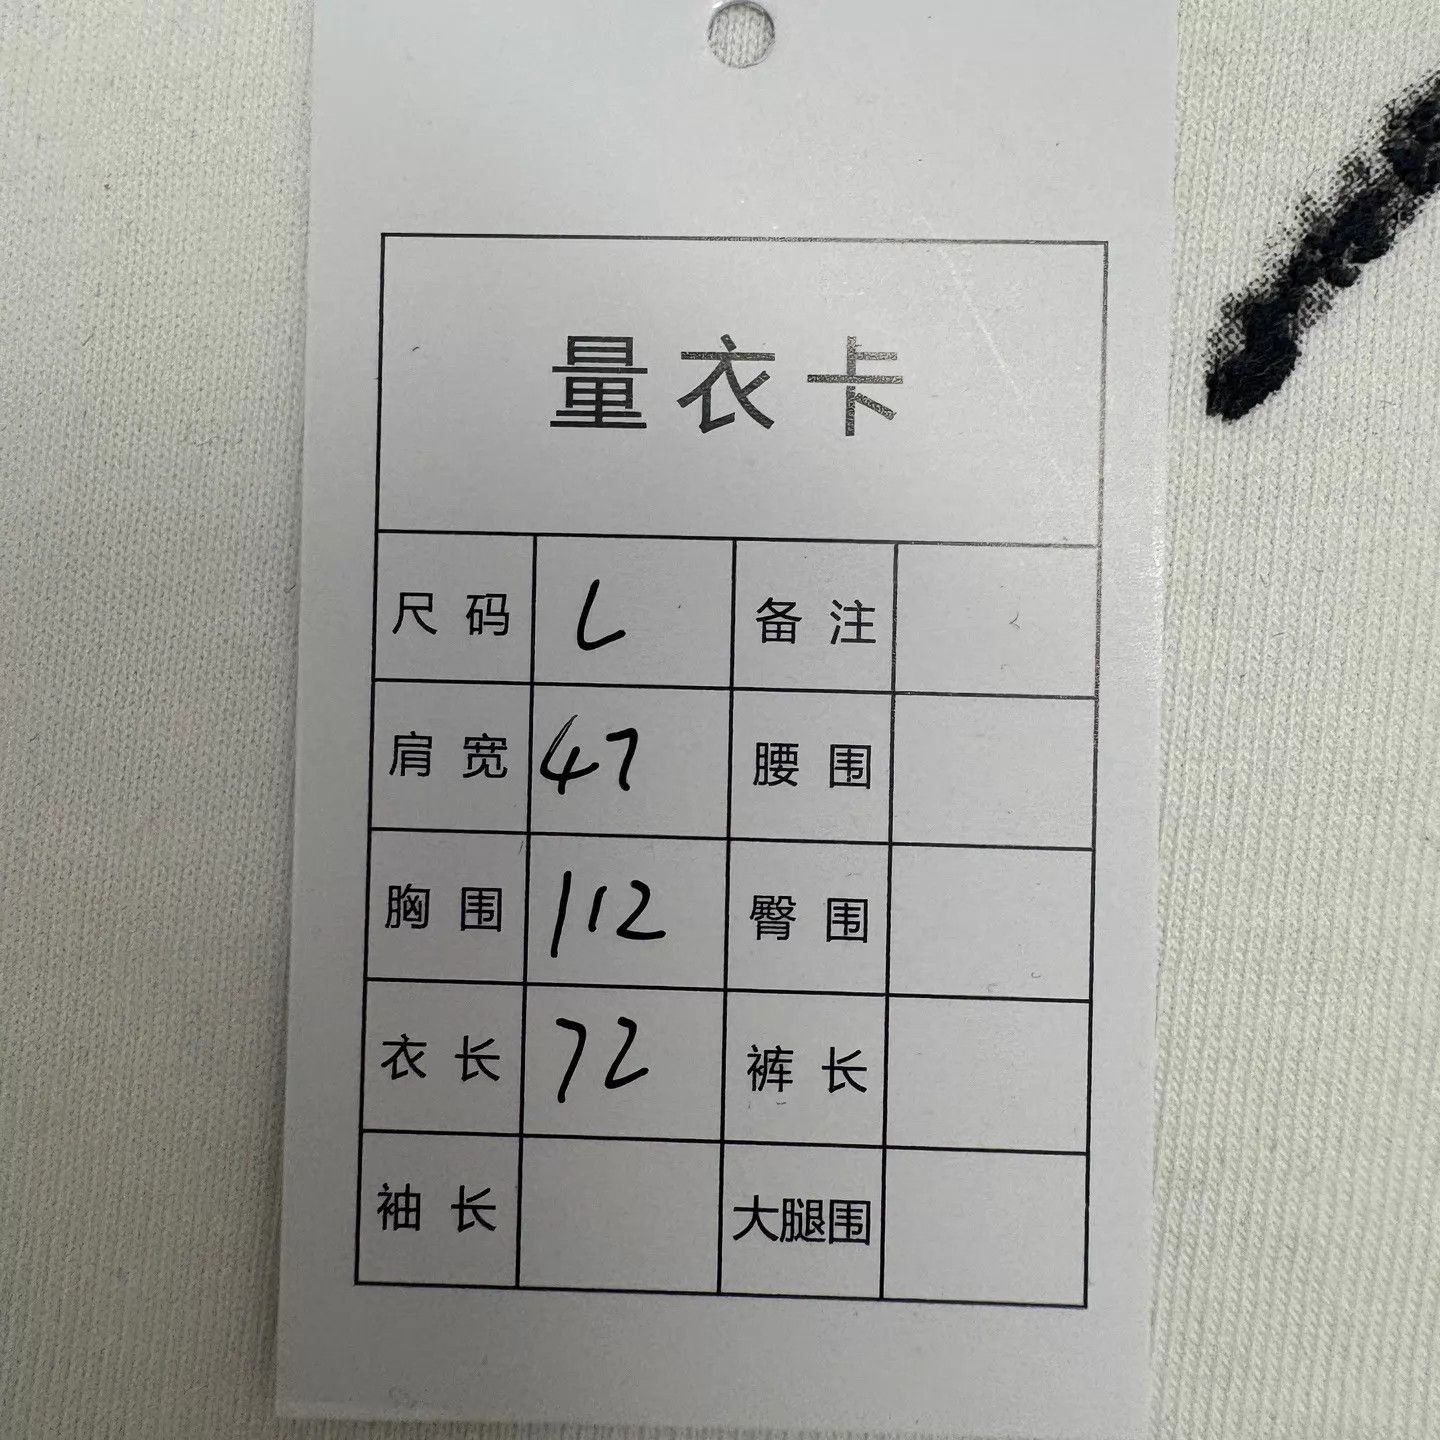 量衣卡
尺码 L 备注
肩宽 47 腰围
胸围 112 臀围
衣长 72 裤长
袖长 大腿围